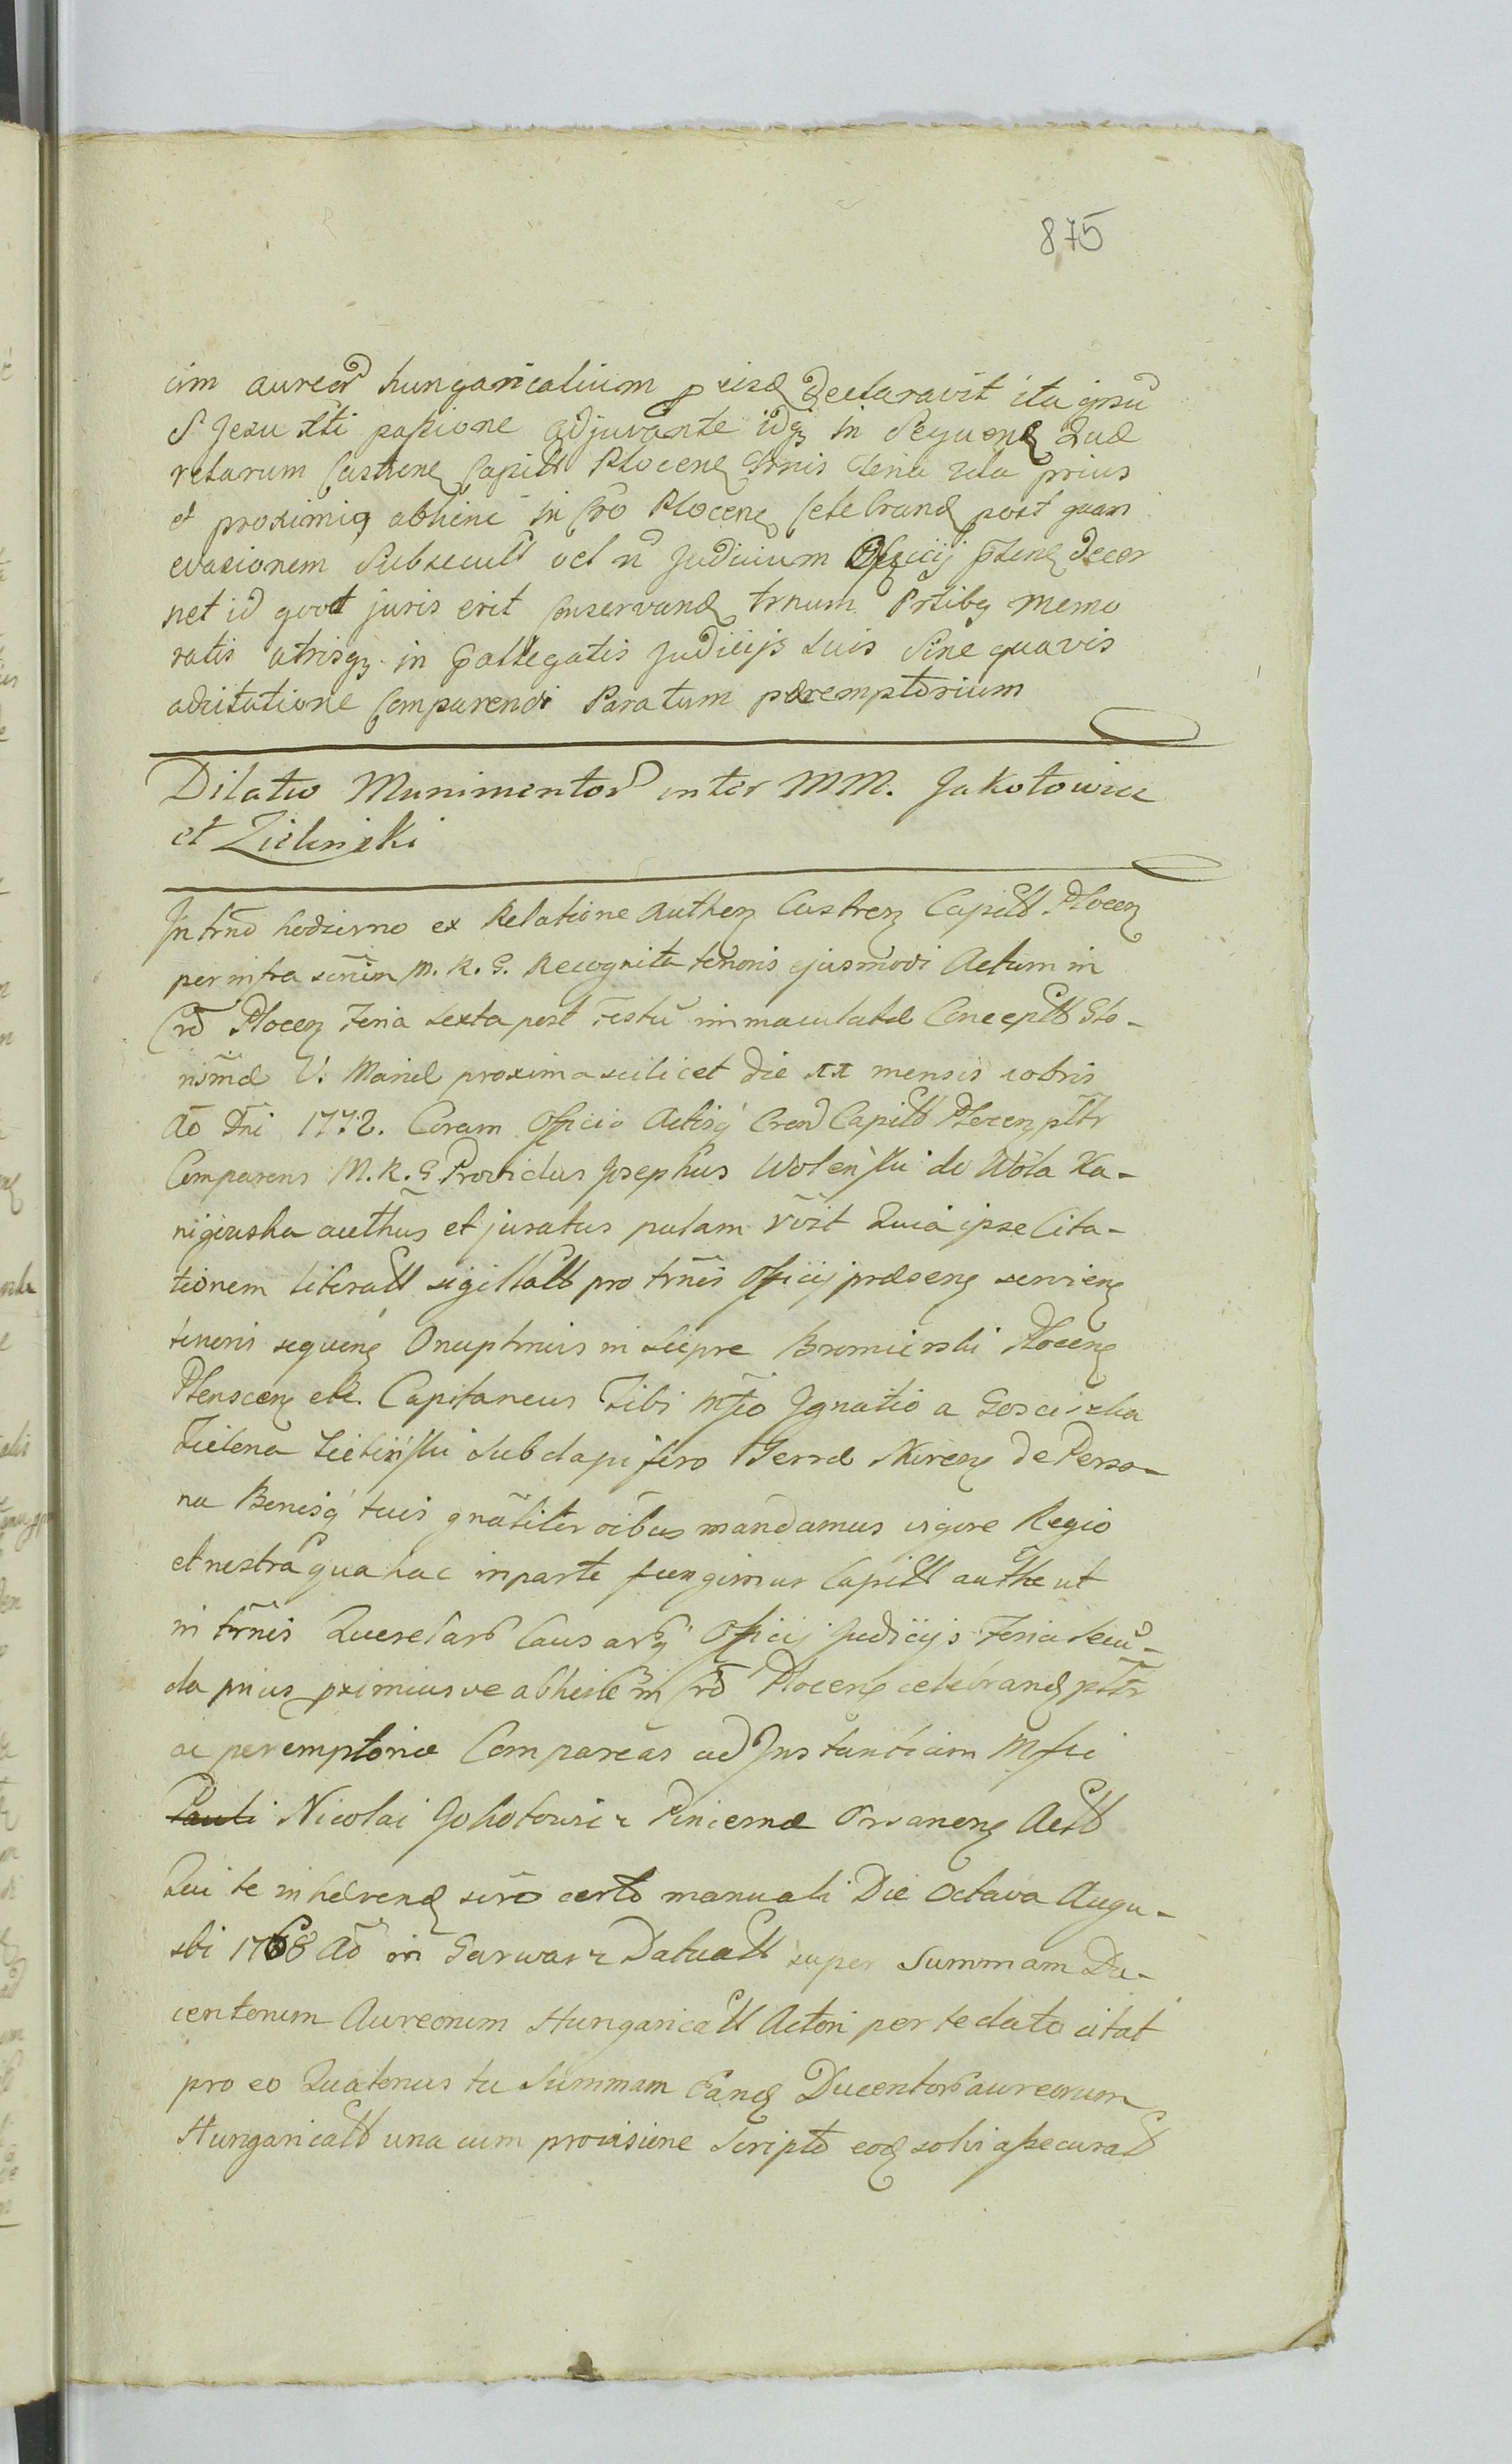 875
cim aureor hungaricalium p eisd declaravit ita ipsu
S Jesu Xti passione adjuvante idq in Sequend Quæ
relarum Castren Capitt Plocen Trnis Feria 2da prius
et proximiq abhinc in Cro Plocen Celebrand post quam
evasionem Subsecutt vel n Judicium Officij pten decer
net id quod juris erit Conservand trnum Prtibq memo
ratis utrisq in pallegatis Judicijs suis Sine quavis
adcitatione Comparendi Paratum peremptorium
Dilatio Munimentor inter MM. Jakotowicz
et Zielinski
In trno hodierno ex Relatione Authen Castren Capitt. Plocen
per infra scrim M. R. G. Recognita tenoris ejusmodi Actum in
Cro Plocen Feria sexta post Festu immaculatæ Conceptt Glo-
rismæ V. Mariæ proxima scilicet die XI mensis Xobris
Ao Dni 1772. Coram Officio Actisq Crend Capitt Plocen pltr
Comparens M. R. G. Providus Josephus Wolenski de Wola Ka-
nigowska authus et juratus palam rvit Quia ipse Cita-
tionem literatt sigillatt pro trnis Officij præsens servien
tenoris sequens Onuphrius in Slepre Bromierski Plocen
Plenscen ett. Capitaneus Tibi Mfco Ignatio a Gosciszka
Zielena Zielinski Subdapifero Terræ Nuren de Perso-
na Bonisq tuis gnaliter oibus mandamus vigore Regio
et nostra qua hac in parte fungimur Capitt authe ut
in trnis Querelarr Causarrq Officij Judicijs Feria secu-
da prius priminusve abhinc in Cro Plocen celebrand pltr
ac peremptorie Compareas ad Instantiam Mfci
Pauli Nicolai Jokotowicz Pincernæ Orsanens Actt
Qui te inhærend scro certo manuali Die Octava Augu-
sti 1768 Ao in Garwarz Datuatt super Summam Du-
centorum Aureorum Hungaricatt Actori per te dato citat
pro eo Quatenus tu Summam Eand Ducentorr aureorum
Hungaricatt una cum provisione Scripto eod solvi assecuratt